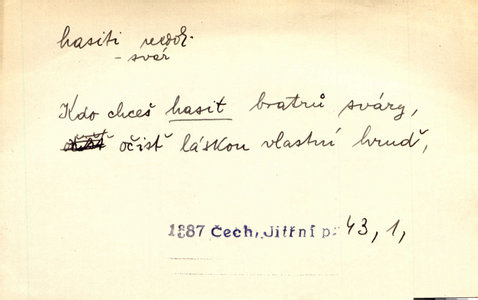 hasiti nedok.
- svár
Kdo chceš hasit bratrů sváry,
očisť láskou vlastní hruď,
1887 Čech, Jitřní p. 43, 1,